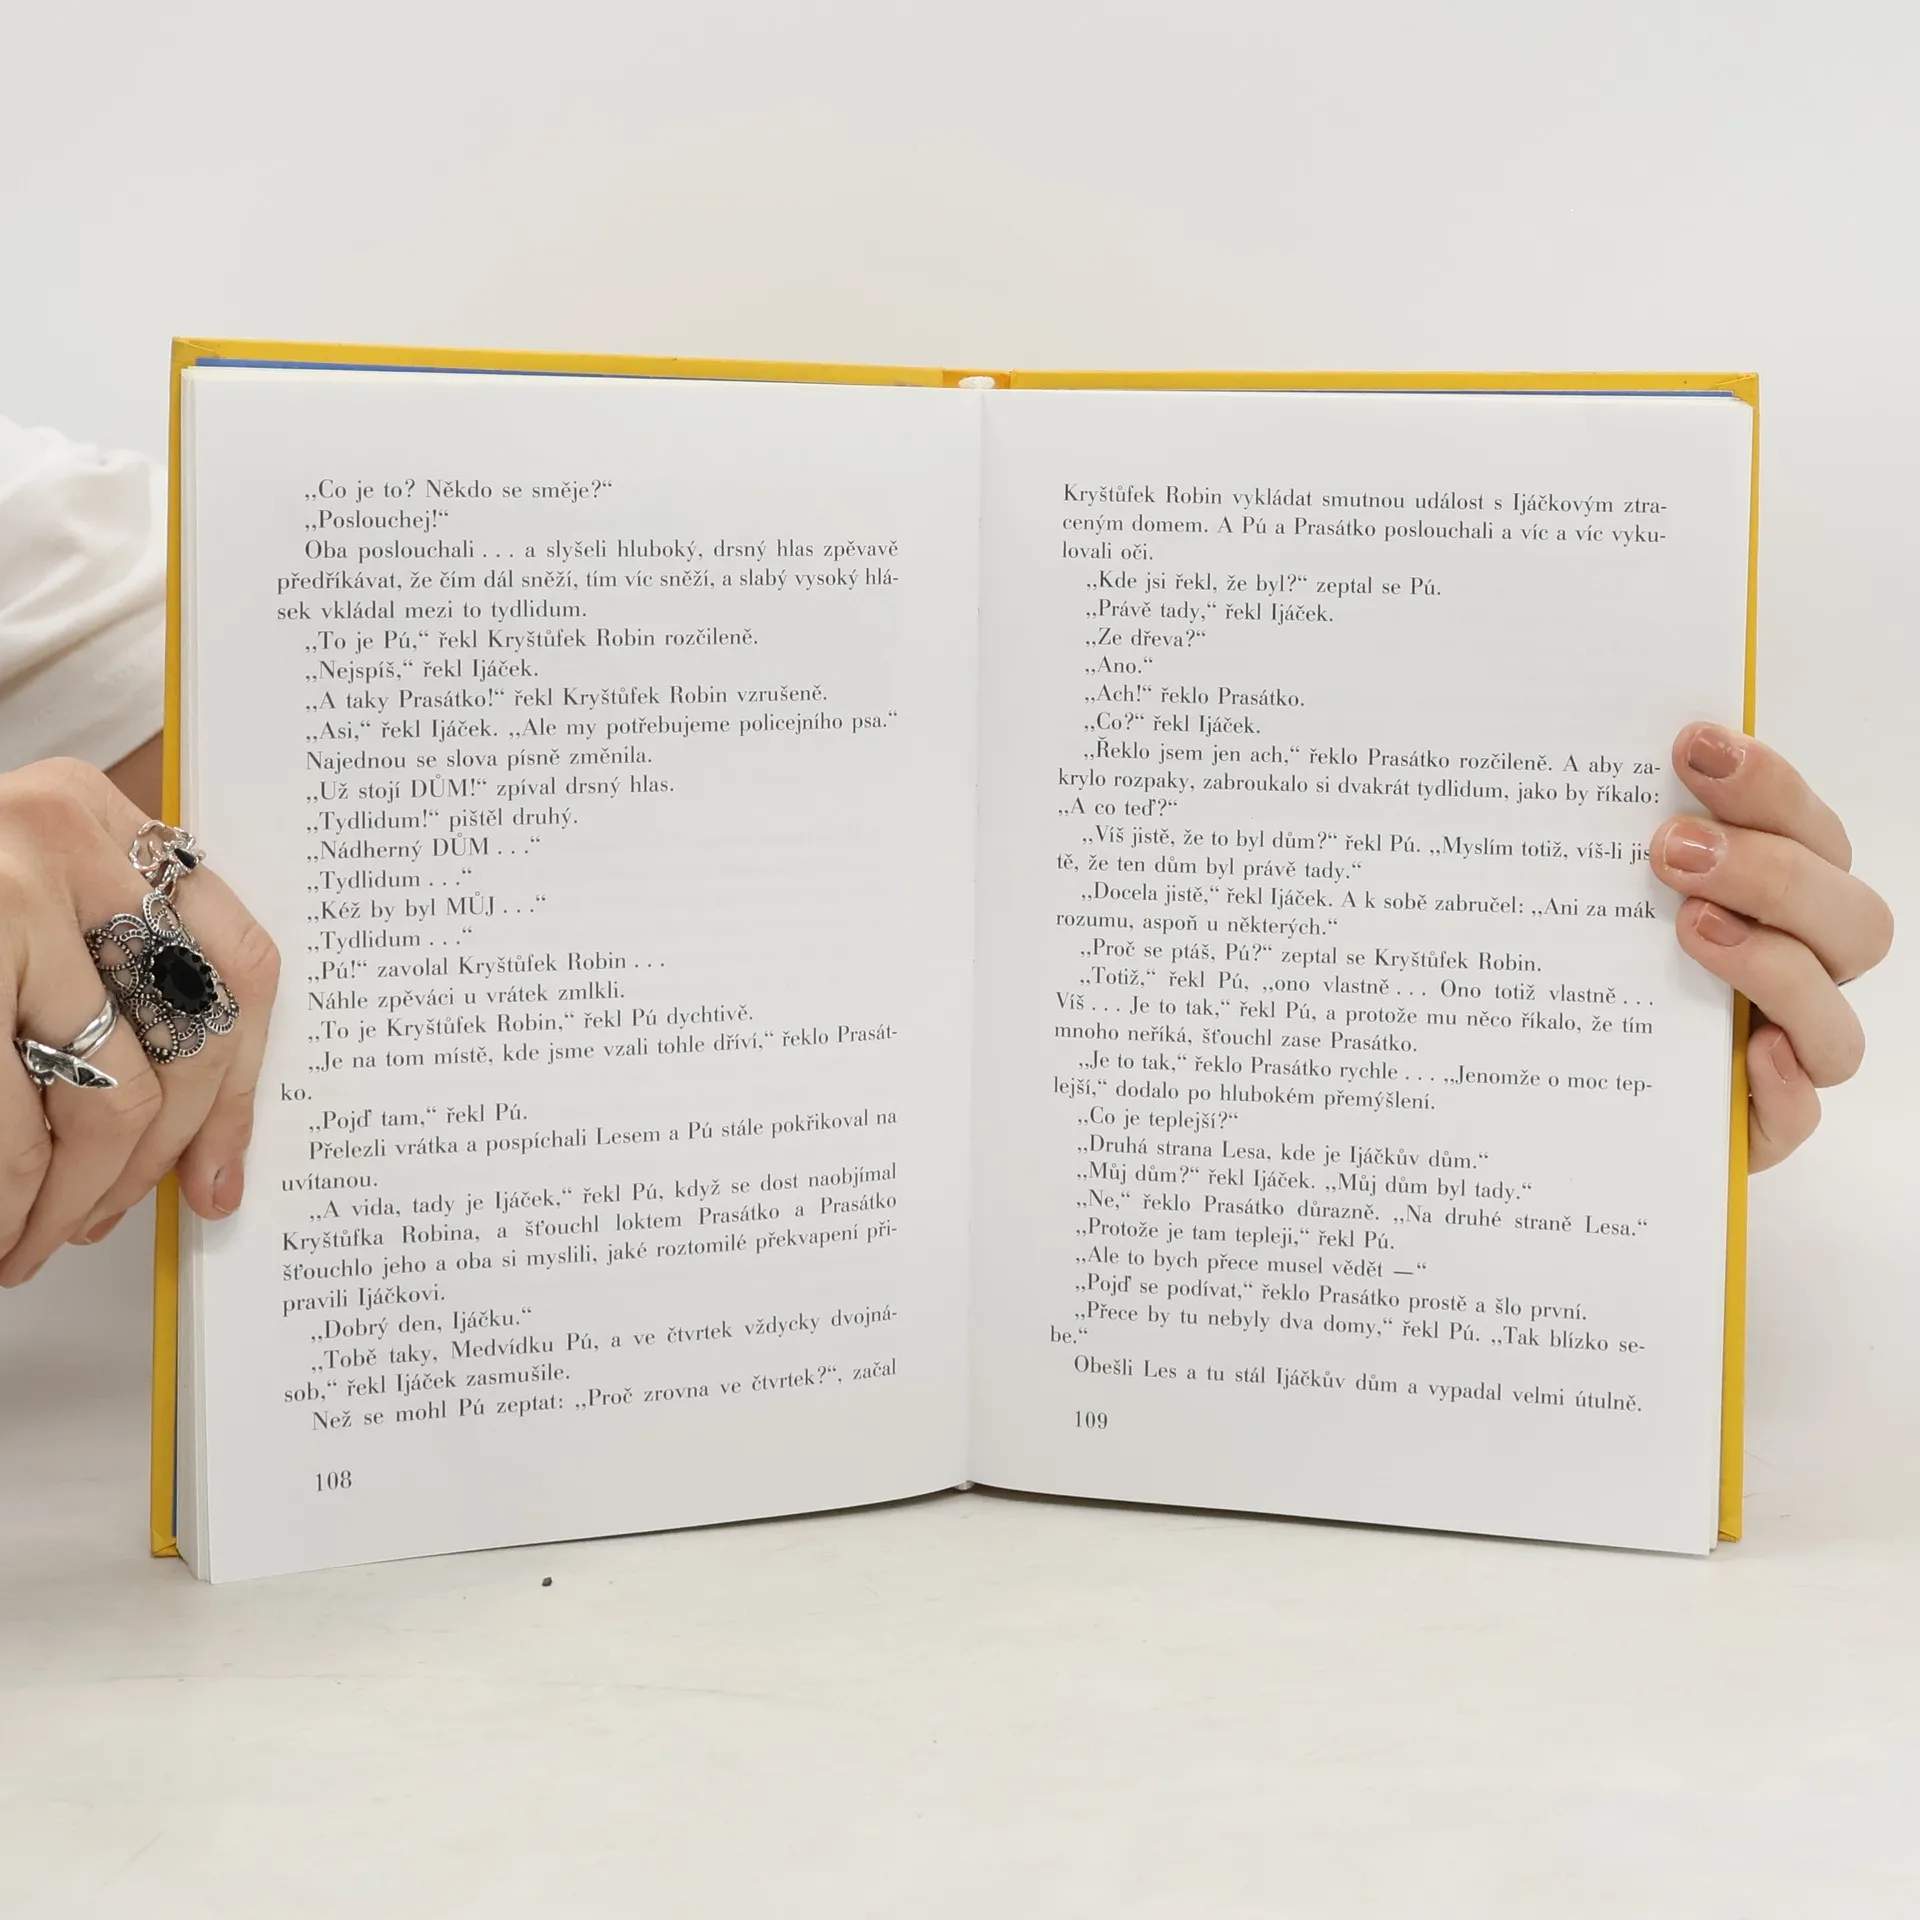 „Co je to? Někdo se směje?“
„Poslouchej!“
Oba poslouchali . . . a slyšeli hluboký, drsný hlas zpěvavě
předříkávat, že čím dál sněží, tím víc sněží, a slabý vysoký hlá-
sek vkládal mezi to tydlidum.
„To je Pú,“ řekl Kryštůfek Robin rozčileně.
„Nejspíš,“ řekl Ijáček.
„A taky Prasátko!“ řekl Kryštůfek Robin vzrušeně.
„Asi,“ řekl Ijáček. „Ale my potřebujeme policejního psa.“
Najednou se slova písně změnila.
„Už stojí DŮM!“ zpíval drsný hlas.
„Tydlidum!“ pištěl druhý.
„Nádherný DŮM . . .“
„Tydlidum . . .“
„Kéž by byl MŮJ . . .“
„Tydlidum . . .“
„Pú!“ zavolal Kryštůfek Robin . . .
Náhle zpěváci u vrátek zmlkli.
„To je Kryštůfek Robin,“ řekl Pú dychtivě.
„Je na tom místě, kde jsme vzali tohle dříví,“ řeklo Prasát-
ko.
„Pojď tam,“ řekl Pú.
Přelezli vrátka a pospíchali Lesem a Pú stále pokřikoval na
uvítanou.
„A vida, tady je Ijáček,“ řekl Pú, když se dost naobjímal
Kryštůfka Robina, a šťouchl loktem Prasátko a Prasátko
šťouchlo jeho a oba si myslili, jaké roztomilé překvapení při-
pravili Ijáčkovi.
„Dobrý den, Ijáčku.“
„Tobě taky, Medvídku Pú, a ve čtvrtek vždycky dvojná-
sob,“ řekl Ijáček zasmušile.
Než se mohl Pú zeptat: „Proč zrovna ve čtvrtek?“, začal
108
Kryštůfek Robin vykládat smutnou událost s Ijáčkovým ztra-
ceným domem. A Pú a Prasátko poslouchali a víc a víc vyku-
lovali oči.
„Kde jsi řekl, že byl?“ zeptal se Pú.
„Právě tady,“ řekl Ijáček.
„Ze dřeva?“
„Ano.“
„Ach!“ řeklo Prasátko.
„Co?“ řekl Ijáček.
„Řeklo jsem jen ach,“ řeklo Prasátko rozčileně. A aby za-
krylo rozpaky, zabroukalo si dvakrát tydlidum, jako by říkalo:
„A co teď?“
„Víš jistě, že to byl dům?“ řekl Pú. „Myslím totiž, víš-li jis
tě, že ten dům byl právě tady.“
„Docela jistě,“ řekl Ijáček. A k sobě zabručel: „Ani za mák
rozumu, aspoň u některých.“
„Proč se ptáš, Pú?“ zeptal se Kryštůfek Robin.
„Totiž,“ řekl Pú, „ono vlastně . . . Ono totiž vlastně . . .
Víš . . . Je to tak,“ řekl Pú, a protože mu něco říkalo, že tím
mnoho neříká, šťouchl zase Prasátko.
„Je to tak,“ řeklo Prasátko rychle . . . „Jenomže o moc tep-
lejší,“ dodalo po hlubokém přemýšlení.
„Co je teplejší?“
„Druhá strana Lesa, kde je Ijáčkův dům.“
„Můj dům?“ řekl Ijáček. „Můj dům byl tady.“
„Ne,“ řeklo Prasátko důrazně. „Na druhé straně Lesa.“
„Protože je tam tepleji,“ řekl Pú.
„Ale to bych přece musel vědět —“
„Pojď se podívat,“ řeklo Prasátko prostě a šlo první.
„Přece by tu nebyly dva domy,“ řekl Pú. „Tak blízko se-
be.“
Obešli Les a tu stál Ijáčkův dům a vypadal velmi útulně.
109